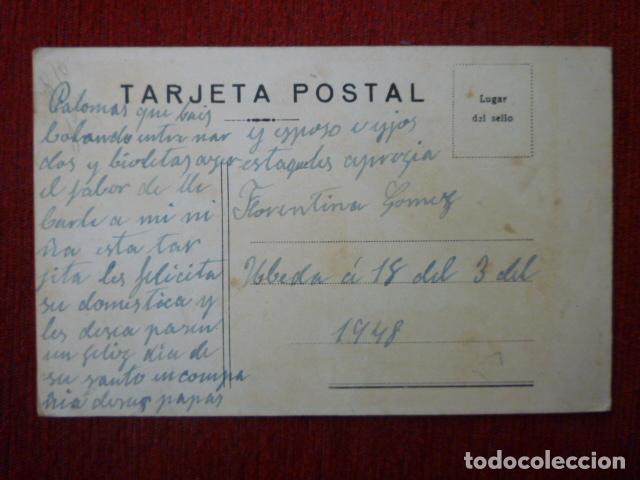 TARJETA POSTAL
Lugar
del sello
Palomas que bais
bolando entre nar
dos y bioletas
el fabor de lle
barle a mi ni
ña esta tar
jita les felicita
su domestica y
les desea pasen
un feliz dia de
su santo en compa
ñia desus papas
y esposo e yjos
esta que les aprezia
Florentina Gomez
Ubeda á 18 del 3 del
1948
todocoleccion.net